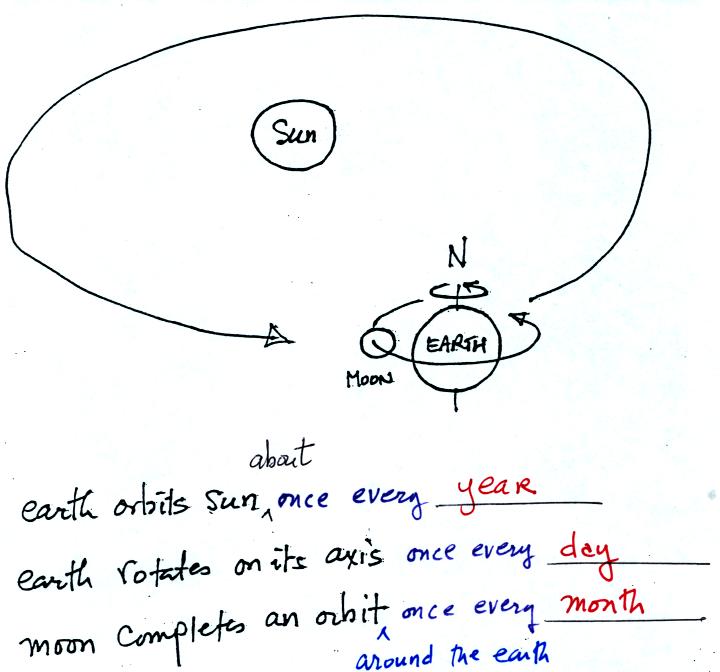 Sun
N
EARTH
MOON
about
earth orbits Sun ‸ once every year
earth rotates on its axis once every day
moon completes an orbit ‸ once every month
around the earth